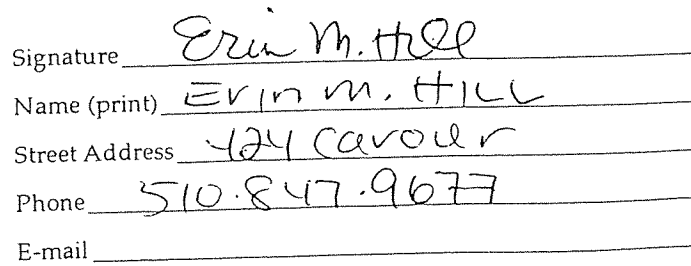 Signature Erin M. Hill
Name (print) Erin M. Hill
Street Address 424 Cavour
Phone 510.847.9677
E-mail